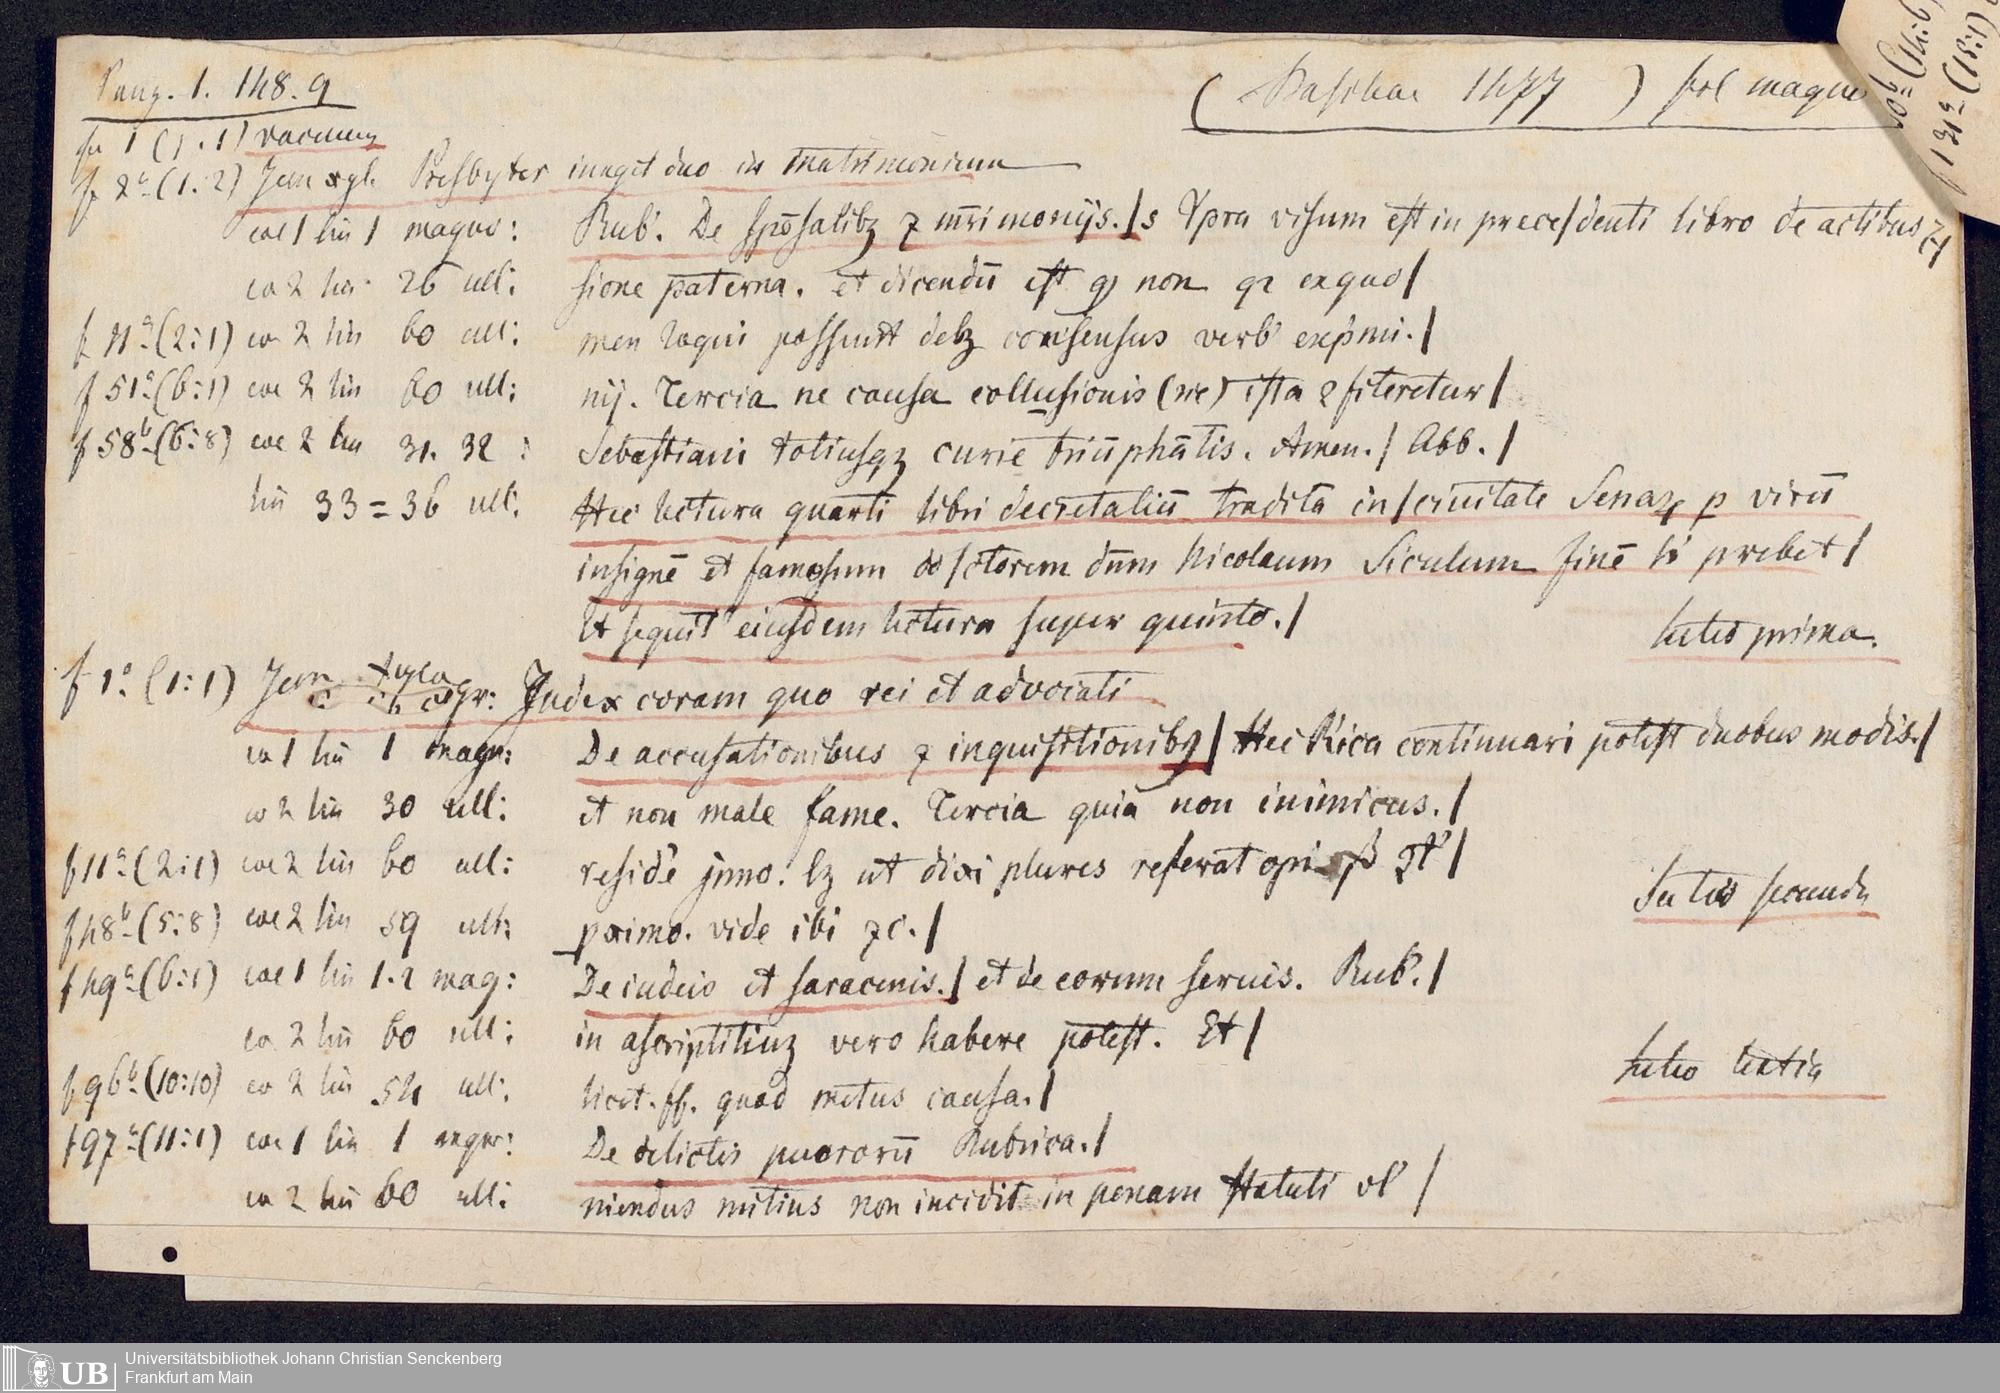 Panz. 1. 148. 9
( Basileae 1477 ) fol magno
fo 1 (1.1) vacuum
f 2a (1:2) Icon xyl. Presbyter iungit duo in matrimonium
col 1 lin 1 magno: Rub'. De spōsalibz ⁊ mr̄imonijs./s Vpra visum est in prece/denti libro de actibus
co 2 lin 26 ult: sione paterna. et dicendū est qɔ non qr ex quo/
f 11a (2:1) co 2 lin 60 ult: men loqui possunt debz consensus verb' exp̄mi./
f 51a (6:1) col 2 lin 60 ult: nij. Tercia ne causa collusionis (sic) ista ꝯfiteretur/
f 58b (6:8) col 2 lin 31. 32: Sebastiani totiusqz curie triūphātis. Amen./ Abb./
lin 33=36 ult: Hec lectura quarti libri decretaliū tradita in/ciuitate Senaꝝ p virū
insignē et famosum do/ctorem dn̄m Nicolaum Siculum finē h' prebet/
Et sequit' eiusdem lectura super quinto./
Sectio prima.
f 1a (1:1) Icon xylogr: Iudex coram quo rei et advocati
co 1 lin 1 magn: De accusationibus ⁊ inquisitionibz/ Hec R'ica continuari potest duobus modis./
co 2 lin 30 ult: et non male fame. Tercia quia non inimicus./
f 11a (2:1) col 2 lin 60 ult: residē jnno. lz ut dixi plures referat opi
Sectio secunda
f 48b (5:8) col 2 lin 59 ult: primo. vide ibi ⁊c./
f 49a (6:1) col 1 lin 1.2 mag: De iudeis et saracenis./ et de eorum seruis. Rub'./
co 2 lin 60 ult: in ascriptitiuz vero habere potest. Et/
Sectio tertia
f 96b (10:10) co 2 lin 54 ult: licet. ff. quod metus causa./
f 97a (11:1) col 1 lin 1 magn: De delictis puerorū Rubrica./
co 2 lin 60 ult: niendus mitius non incidit in penam statuti vl'/
(14:6)
131a (18:1)
UB
Universitätsbibliothek Johann Christian Senckenberg
Frankfurt am Main